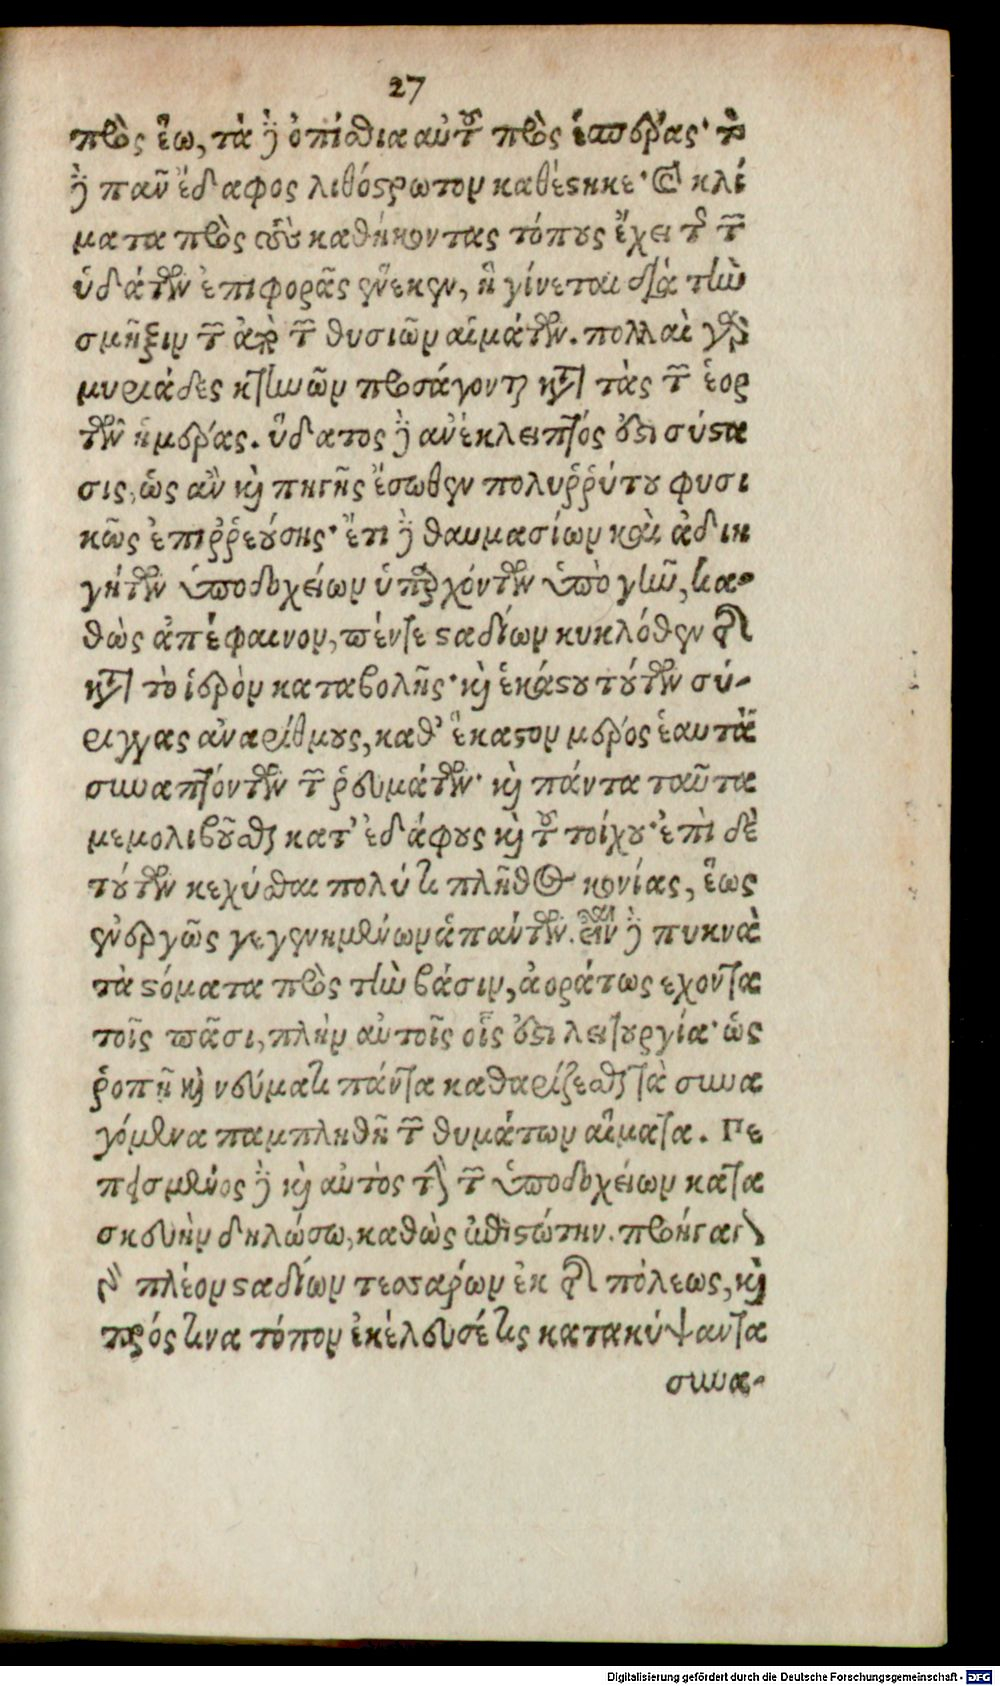 27
πρὸς ἕω, τὰ δὲ ὀπίσθια αὐτοῦ πρὸς ἑσπέρας· τὸ
δὲ πᾶν ἔδαφος λιθόστρωτον καθέστηκε· καὶ κλί
ματα πρὸς τοὺς καθήκοντας τόπους ἔχει τῆς τῶν
ὑδάτων ἐπιφορᾶς ἕνεκεν, ἣ γίνεται διὰ τὴν
σμῆξιν τῶν ἀπὸ τῶν θυσιῶν αἱμάτων. πολλαὶ γὰρ
μυριάδες κτηνῶν προσάγονται κατὰ τὰς τῶν ἑορ
τῶν ἡμέρας. ὕδατος δὲ ἀνέκλειπτός ἐστι σύστα
σις, ὡς ἂν καὶ πηγῆς ἔσωθεν πολυῤῥύτου φυσι
κῶς ἐπιῤῥεούσης· ἔτι δὲ θαυμασίων καὶ ἀδιη
γήτων ὑποδοχείων ὑπαρχόντων ὑπὸ γῆν, κα-
θὼς ἀπέφαινον, πέντε σταδίων κυκλόθεν τῆς
κατὰ τὸ ἱερὸν καταβολῆς· καὶ ἑκάστου τούτων σύ-
ριγγας ἀναρίθμους, καθ' ἕκαστον μέρος ἑαυτὰ
συναπτόντων τῶν ῥευμάτων· καὶ πάντα ταῦτα
μεμολιβοῦσθαι κατ' ἐδάφους καὶ τοῦ τοίχου· ἐπὶ δὲ
τούτων κεχύσθαι πολύ τι πλῆθος κονίας, ἕως
ἐνεργῶς γεγενημένων ἁπάντων. εἶναι δὲ πυκνὰ
τὰ στόματα πρὸς τὴν βάσιν, ἀοράτως ἔχοντα
τοῖς πᾶσι, πλὴν αὐτοῖς οἷς ἐστι λειτουργία· ὡς
ῥοπῇ καὶ νεύματι πάντα καθαρίζεσθαι τὰ συνα
γόμενα παμπληθῆ τῶν θυμάτων αἵματα. Πε
πεισμένος δὲ καὶ αὐτὸς τὴν τῶν ὑποδοχείων κατα
σκευὴν δηλώσω, καθὼς ἐπιστώθην. προήγαγε
πλέον σταδίων τεσσάρων ἐκ τῆς πόλεως, καὶ
πρός τινα τόπον ἐκέλευσέ τις κατακύψαντα
συνα-
Digitalisierung gefördert durch die Deutsche Forschungsgemeinschaft - DFG